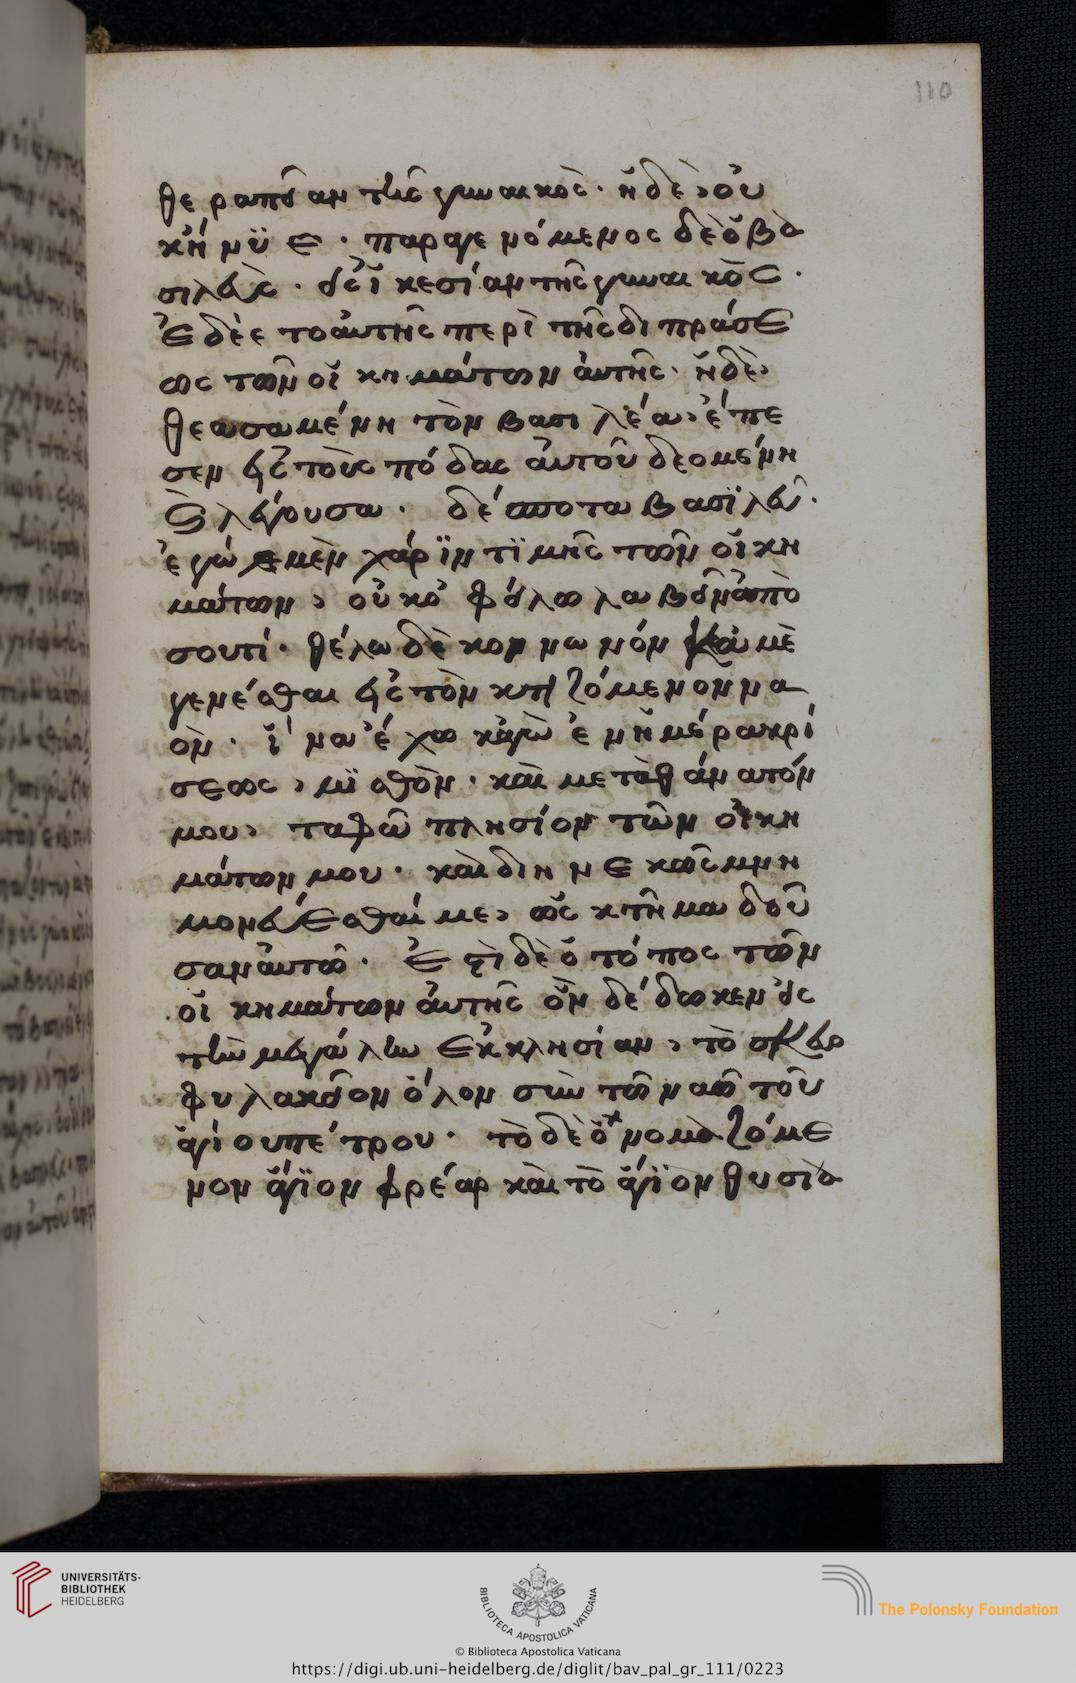 110
θεραπείαν τῆς γυναικὸς· ἡ δὲ, οὐ
κήνϋε· παραγενόμενος δὲ ὁ βα
σιλεὺς· δι' ϊκεσίαν τῆς γυναικὸς·
ἐδέετο αὐτῆς περὶ τῆς διπράσε
ως τῶν οἰκημάτων αὐτῆς· ἡ δὲ
θεασαμένη τὸν βασιλέα, ἔπε
σεν εἰς τοὺς πόδας αὐτοῦ δεομένη
λέγουσα· δέσποτα βασϊλεῦ·
ἐγὼ μὲν χάρϊν τϊμῆς τῶν οἰκη
μάτων, οὐκ ὀφείλω λαβεῖν ἀπὸ
σου τί· θέλω δὲ κοινωνόν κἀμὲ
γενέσθαι εἰς τὸν κτιζόμενον να
όν· ἵνα ἔχω κἀγὼ ἐν ἡμέρα κρί
σεως, μϊσθὸν· καὶ μετὰ θάνατόν
μου, ταφῶ πλησίον τῶν οἰκη
μάτων μου· καὶ διηνεκῶς μνη
μονεύεσθαί με, ὡς κτῆμα δοῦ
σαν αὐτῶ· ἐστὶ δὲ ὁ τόπος τῶν
οἰκημάτων αὐτῆς ὃν δέδωκεν εἰς
τὴν μεγάλην ἐκκλησίαν, τὸ σκευο
φυλακεῖον ὅλον σὺν τῶ ναῶ τοῦ
ἁγίου πέτρου· τὸ δὲ ὀνομαζόμε
νον ἅγϊον φρέαρ καὶ τὸ ἅγϊον θυσία
UNIVERSITÄTS-
BIBLIOTHEK
HEIDELBERG
BIBLIOTECA APOSTOLICA VATICANA
The Polonsky Foundation
© Biblioteca Apostolica Vaticana
https://digi.ub.uni-heidelberg.de/diglit/bav_pal_gr_111/0223